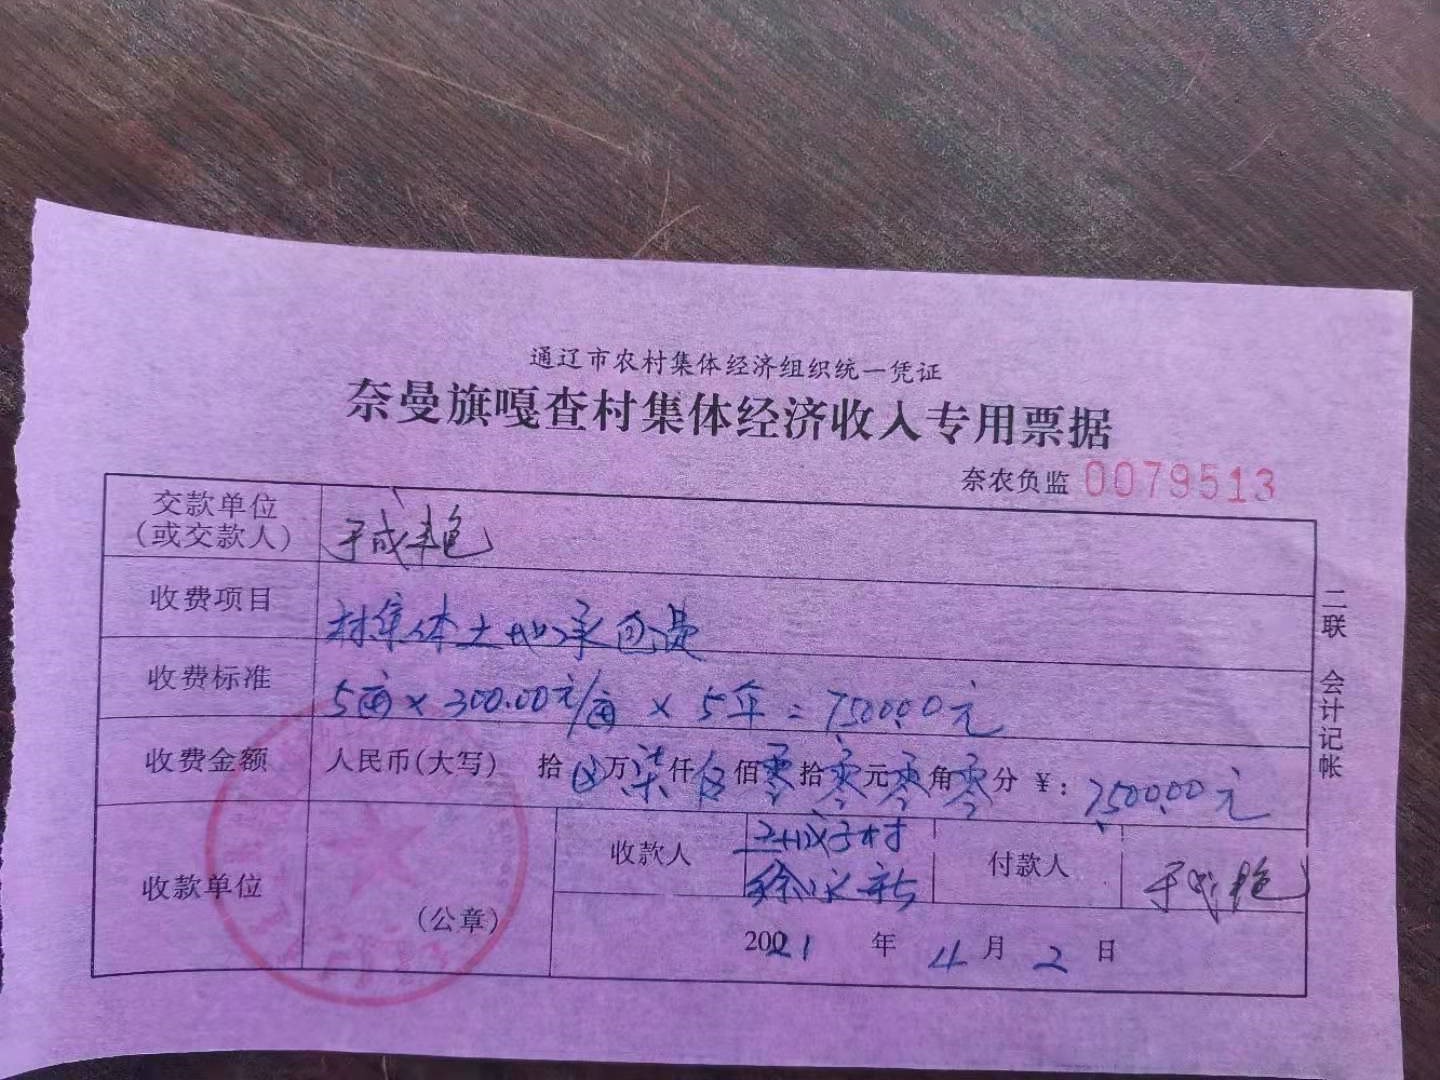 通辽市农村集体经济组织统一凭证
奈曼旗嘎查村集体经济收入专用票据
奈农负监 0079513
交款单位
(或交款人) 于成艳
收费项目 村集体土地承包费
收费标准 5亩×300.00元/亩×5年=7500.00元
收费金额 人民币(大写) 拾 万柒仟伍佰零拾零元零角零分 ¥:7500.00元
收款单位 (公章) 收款人 付款人 于成艳
2021 年 4 月 2 日
二联 会计记帐